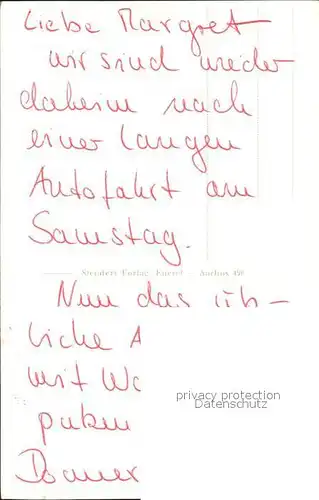 Liebe Margret
wir sind wieder
daheim nach
einer langen
Autofahrt am
Samstag.
Stenders Verlag
Nun das üb-
liche A
mit Wa
privacy protection
Datenschutz